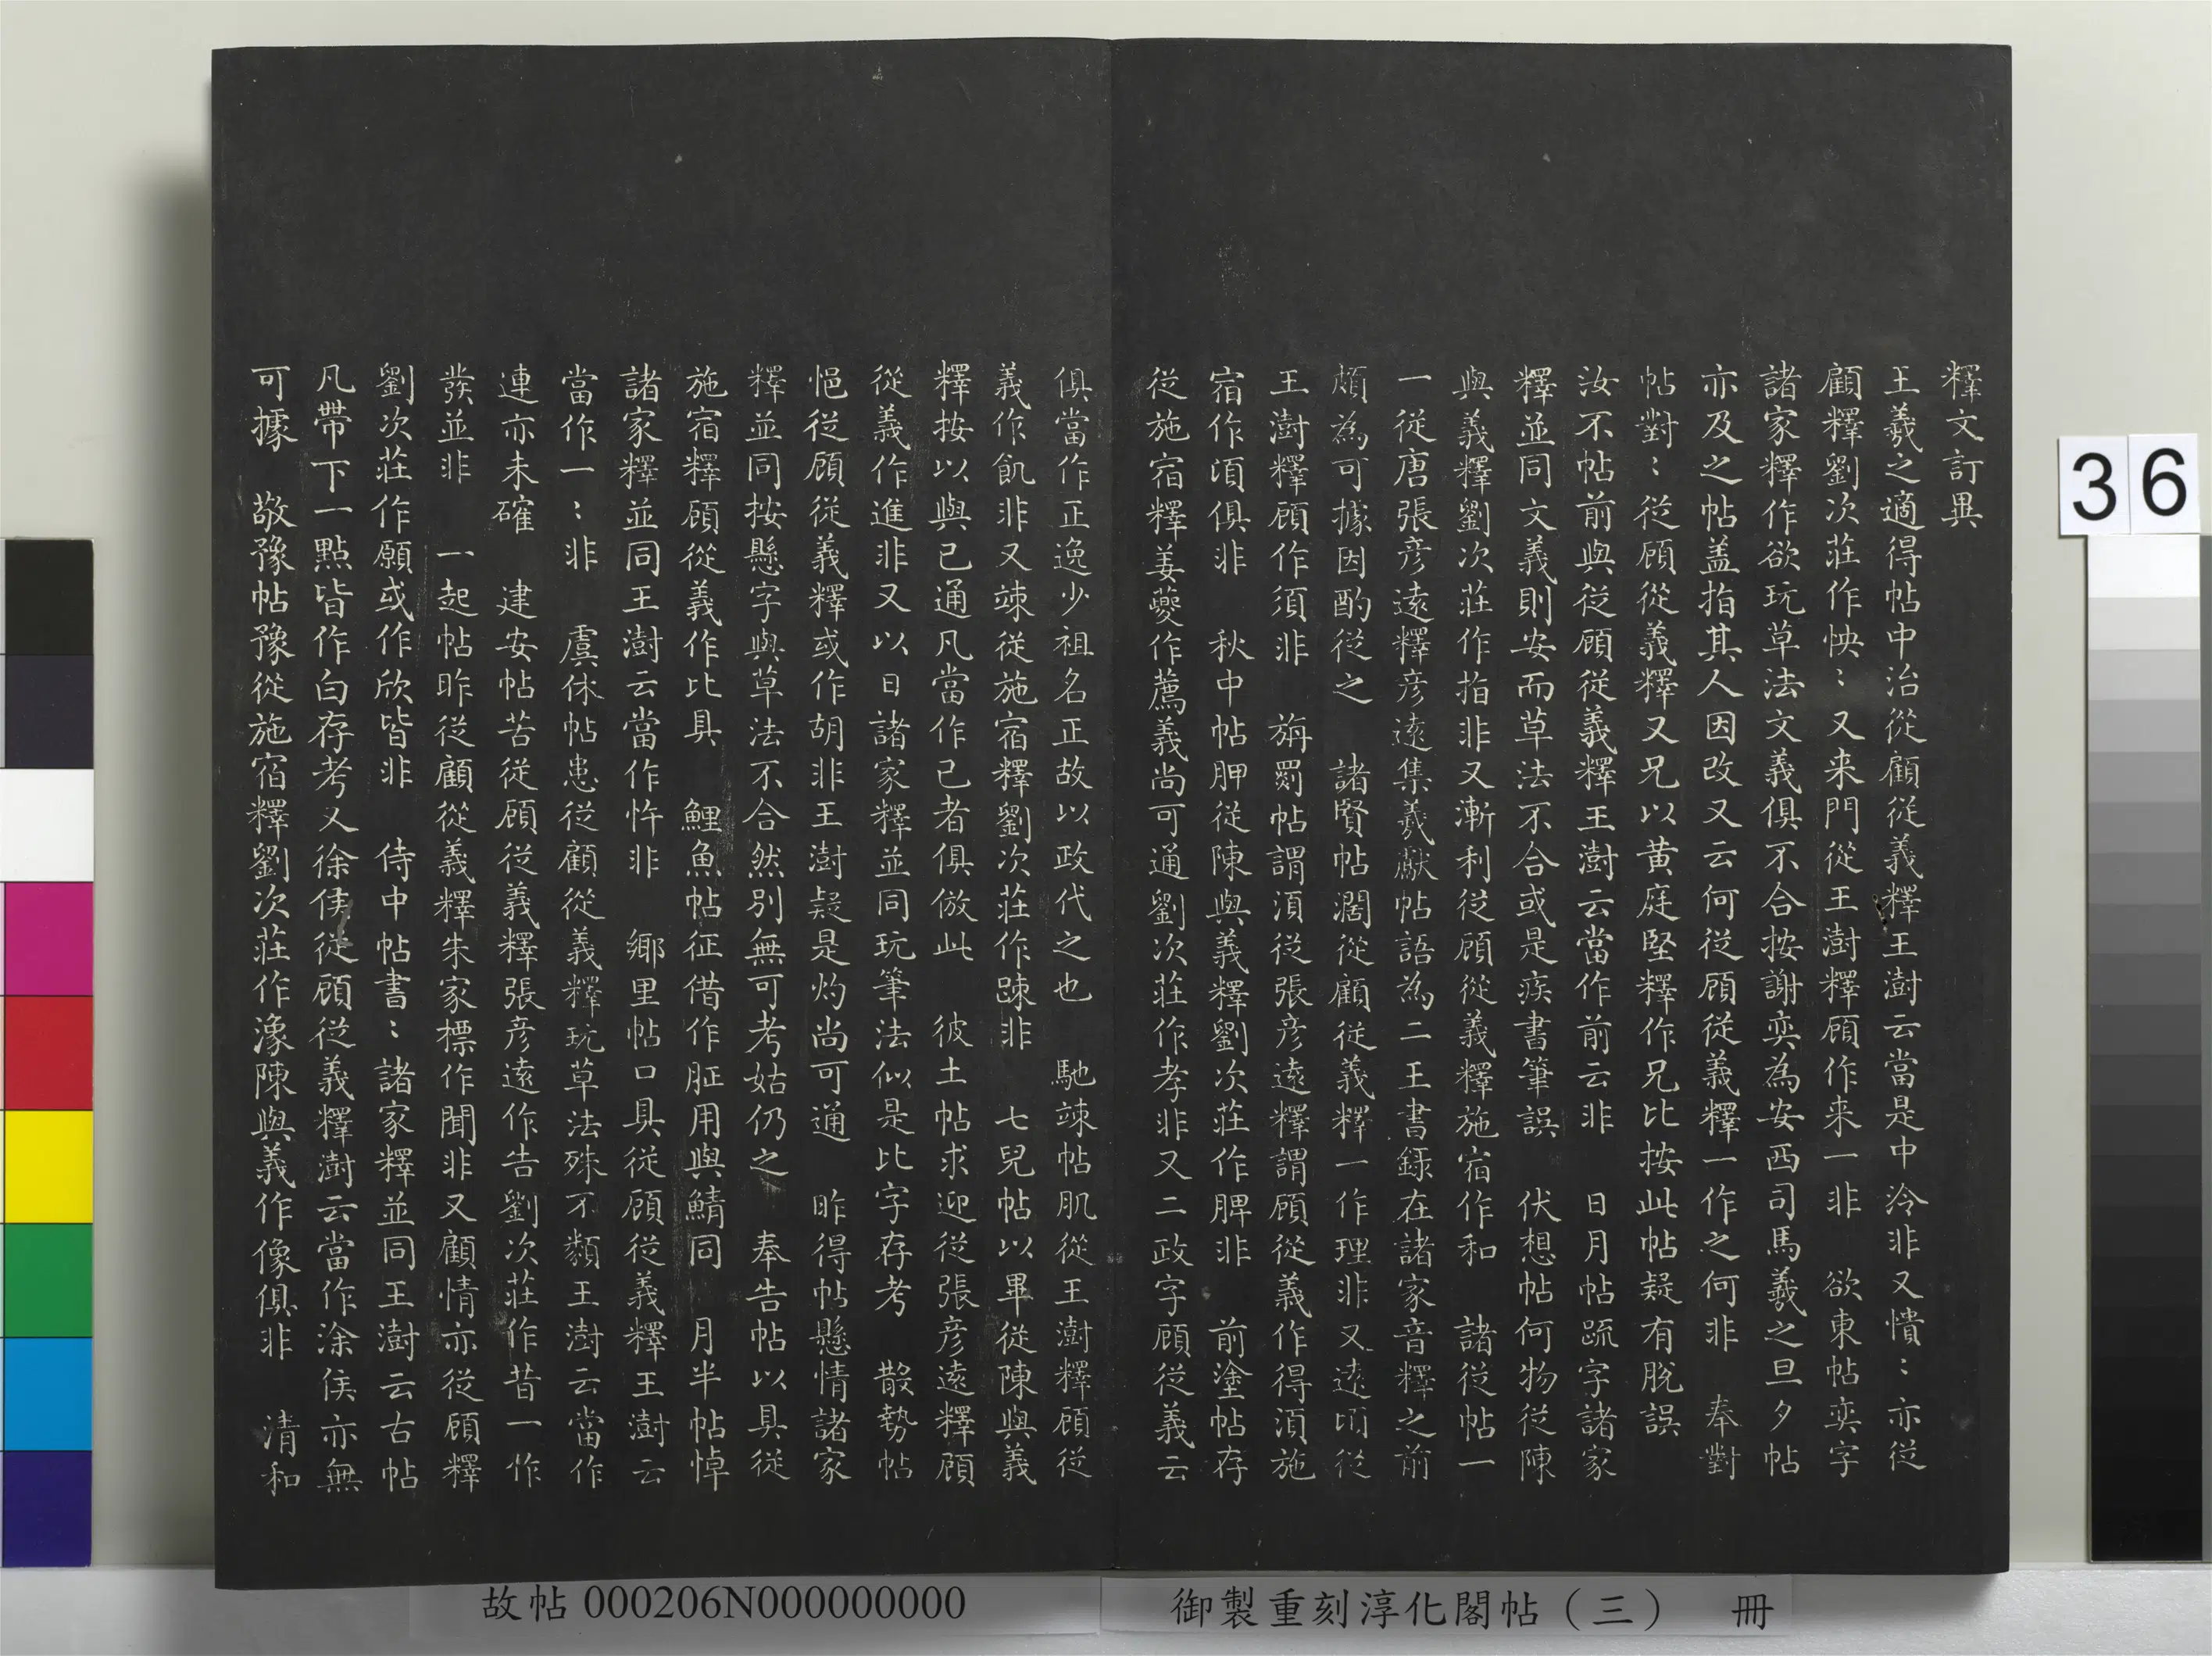 釋文訂異
王羲之適得帖中治從顧從義釋王澍云當是中泠非又憒：亦從
顧釋劉次莊作怏：又来門從王澍釋顧作来一非　欲東帖奕字
諸家釋作欲玩草法文義俱不合按謝奕為安西司馬羲之旦夕帖
亦及之帖盖指其人因改又云何從顧從義釋一作之何非　奉對
帖對：從顧從義釋又兄以黄庭堅釋作兄比按此帖疑有脫誤
汝不帖前與從顧從義釋王澍云當作前云非　日月帖䟽字諸家
釋並同文義則安而草法不合或是疾書筆誤　伏想帖何物從陳
與義釋劉次莊作指非又漸利從顧從義釋施宿作和　諸從帖一
一從唐張彦遠釋彦遠集羲獻帖語為二王書録在諸家音釋之前
頗為可據因酌從之　諸賢帖濶從顧從義釋一作理非又遠頃從
王澍釋顧作須非　旃罽帖謂湏從張彦遠釋謂顧從義作得湏施
宿作頃俱非　秋中帖胛從陳與義釋劉次莊作脾非　前塗帖存
從施宿釋姜夔作薦義尚可通劉次莊作孝非又二政字顧從義云
俱當作正逸少祖名正故以政代之也　馳竦帖肌從王澍釋顧從
義作飢非又竦從施宿釋劉次莊作踈非　七兒帖以畢從陳與義
釋按以與已通凡當作已者俱倣此　彼土帖求迎從張彦遠釋顧
從義作進非又以日諸家釋並同玩筆法似是比字存考　散勢帖
悒從顧從義釋或作胡非王澍疑是灼尚可通　昨得帖懸情諸家
釋並同按懸字與草法不合然別無可考姑仍之　奉告帖以具從
施宿釋顧從義作比具　鯉魚帖征借作䏣用與鯖同　月半帖悼
諸家釋並同王澍云當作忤非　鄉里帖口具從顧從義釋王澍云
當作一：非　虞休帖患從顧從義釋玩草法殊不類王澍云當作
連亦未確　建安帖苦從顧從義釋張彦遠作告劉次莊作昔一作
發並非　一起帖昨從顧從義釋朱家標作聞非又顧情亦從顧釋
劉次莊作願或作欣皆非　侍中帖書：諸家釋並同王澍云古帖
凡帶下一點皆作白存考又徐侯從顧從義釋澍云當作涂俟亦無
可據　敬豫帖豫從施宿釋劉次莊作潒陳與義作像俱非　清和
36
故帖000206N000000000
御製重刻淳化閣帖（三）　冊